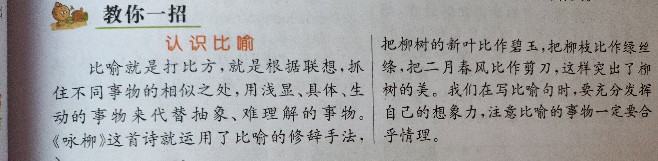 教你一招
认识比喻
比喻就是打比方,就是根据联想,抓
住不同事物的相似之处,用浅显、具体、生
动的事物来代替抽象、难理解的事物。
《咏柳》这首诗就运用了比喻的修辞手法,
把柳树的新叶比作碧玉,把柳枝比作绿丝
绦,把二月春风比作剪刀,这样突出了柳
树的美。我们在写比喻句时,要充分发挥
自己的想象力,注意比喻的事物一定要合
乎情理。